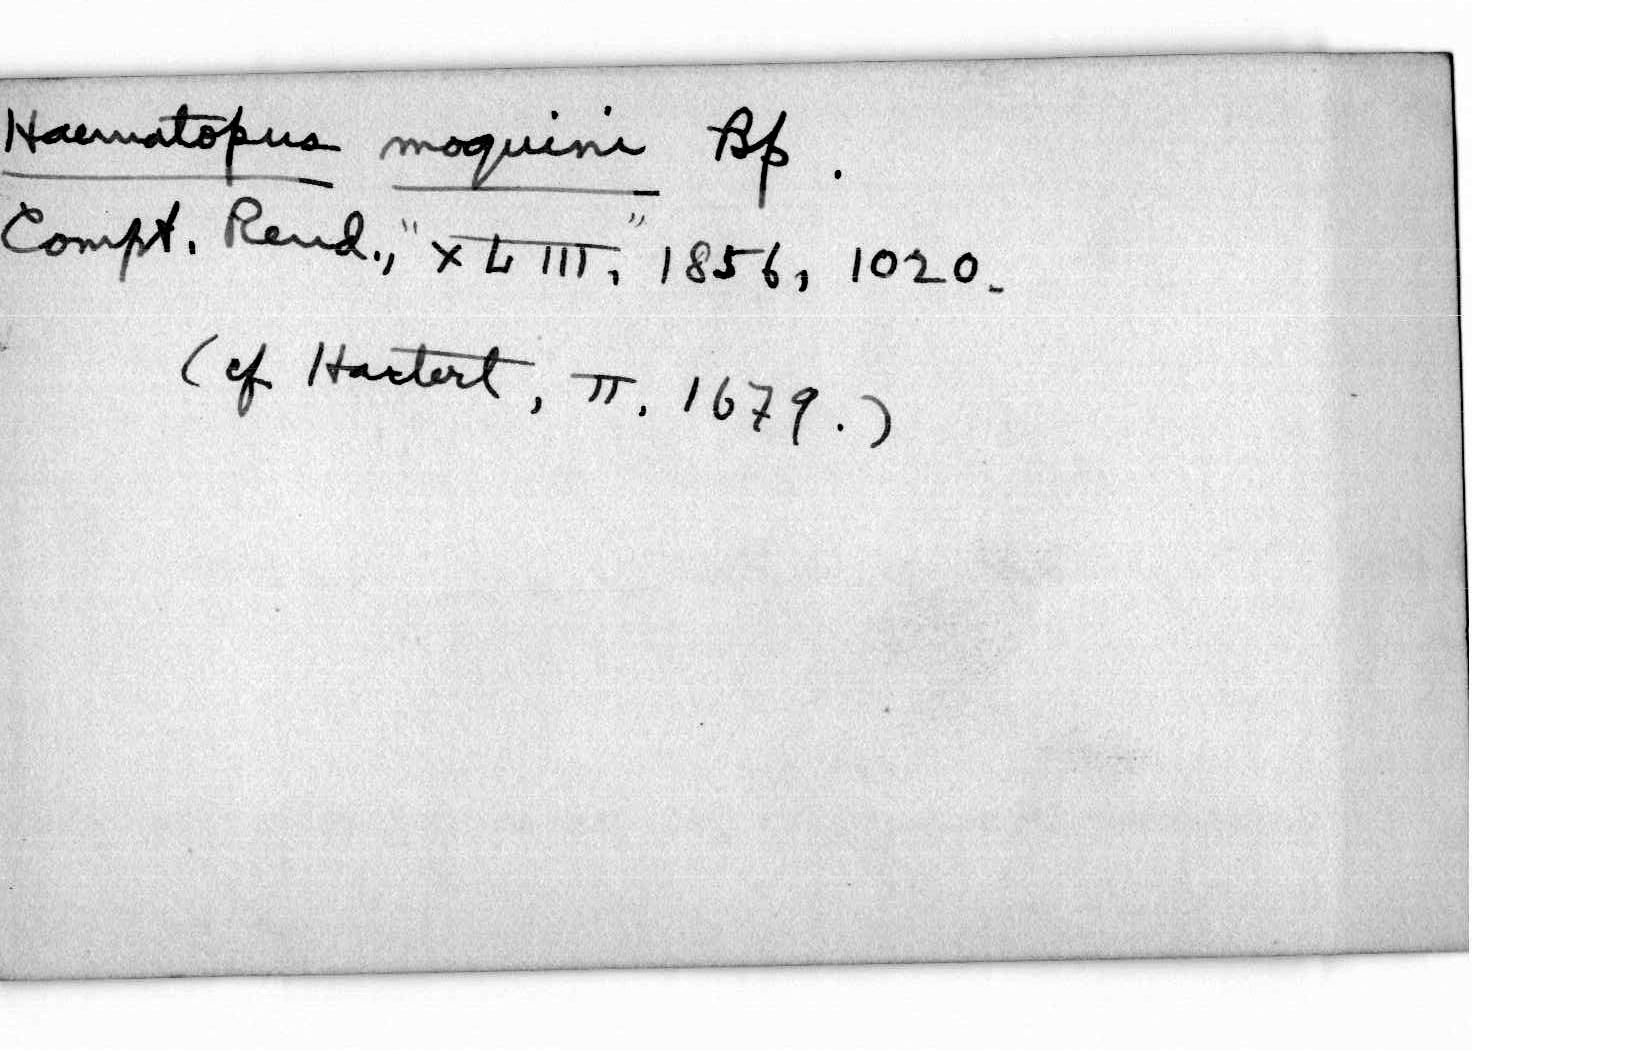 Haematopus moquini Bp.
Compt. Rend., "XLIII," 1856, 1020.
(cf Hartert, II. 1679.)